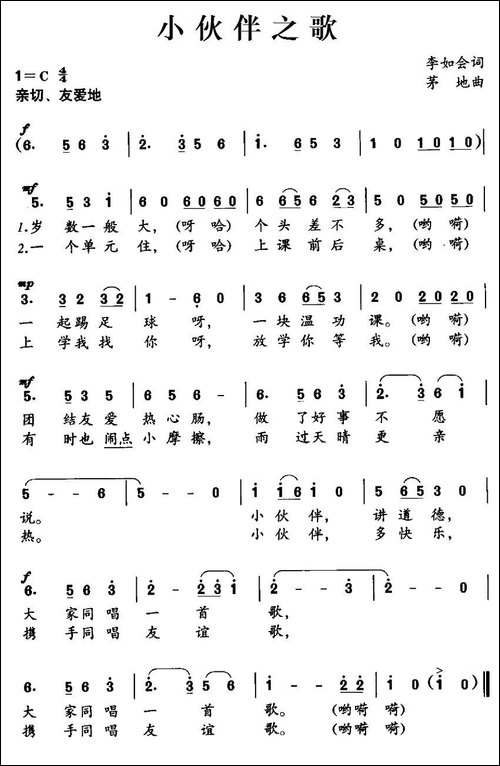 小伙伴之歌
1=C 4/4
李如会词
亲切、友爱地
茅 地曲
f
(6. 5 6 3 | 2. 3 5 5 | 1. 6 5 3 | 1 0 1010)|
mf
5. 5 3 1 | 6 0 6060 | 6 6 5 6 2 3 | 5 0 5050 |
1.岁 数一般 大,(呀 哈) 个头差不 多,(哟 嗬)
2.一 个单元 住,(呀 哈) 上课前后 桌,(哟 嗬)
mp
3. 3 2 3 2 | 1 - 6 0 | 3 6 6 5 3 | 2 0 2020 |
一 起踢足 球 呀, 一块温功 课。(哟 嗬)
上 学我找 你 呀, 放学你等 我。(哟 嗬)
mf
5. 5 3 5 | 6 5 6 - | 6. 5 6 3 | 2. 3 6 1 |
团 结友爱 热心肠, 做 了好事 不 愿
有 时也闹点小摩擦, 雨 过天晴 更 亲
5 - - 6 | 5 - - 0 | 1 1 6 1 0 | 5 6 5 3 0 |
说。 小伙伴, 讲道德,
热。 小伙伴, 多快乐,
f
6. 5 6 3 | 2 - - 2 3 1 | 2 - - - | 2 - - 0 |
大 家同唱 一 首 歌,
携 手同唱 友 谊 歌,
6. 5 6 3 | 2. 3 5 6 | 1 - - 2 2 | 1 0 (1 0) ||
大 家同唱 一 首 歌。(哟嗬 嗬)
携 手同唱 友 谊 歌。(哟嗬 嗬)